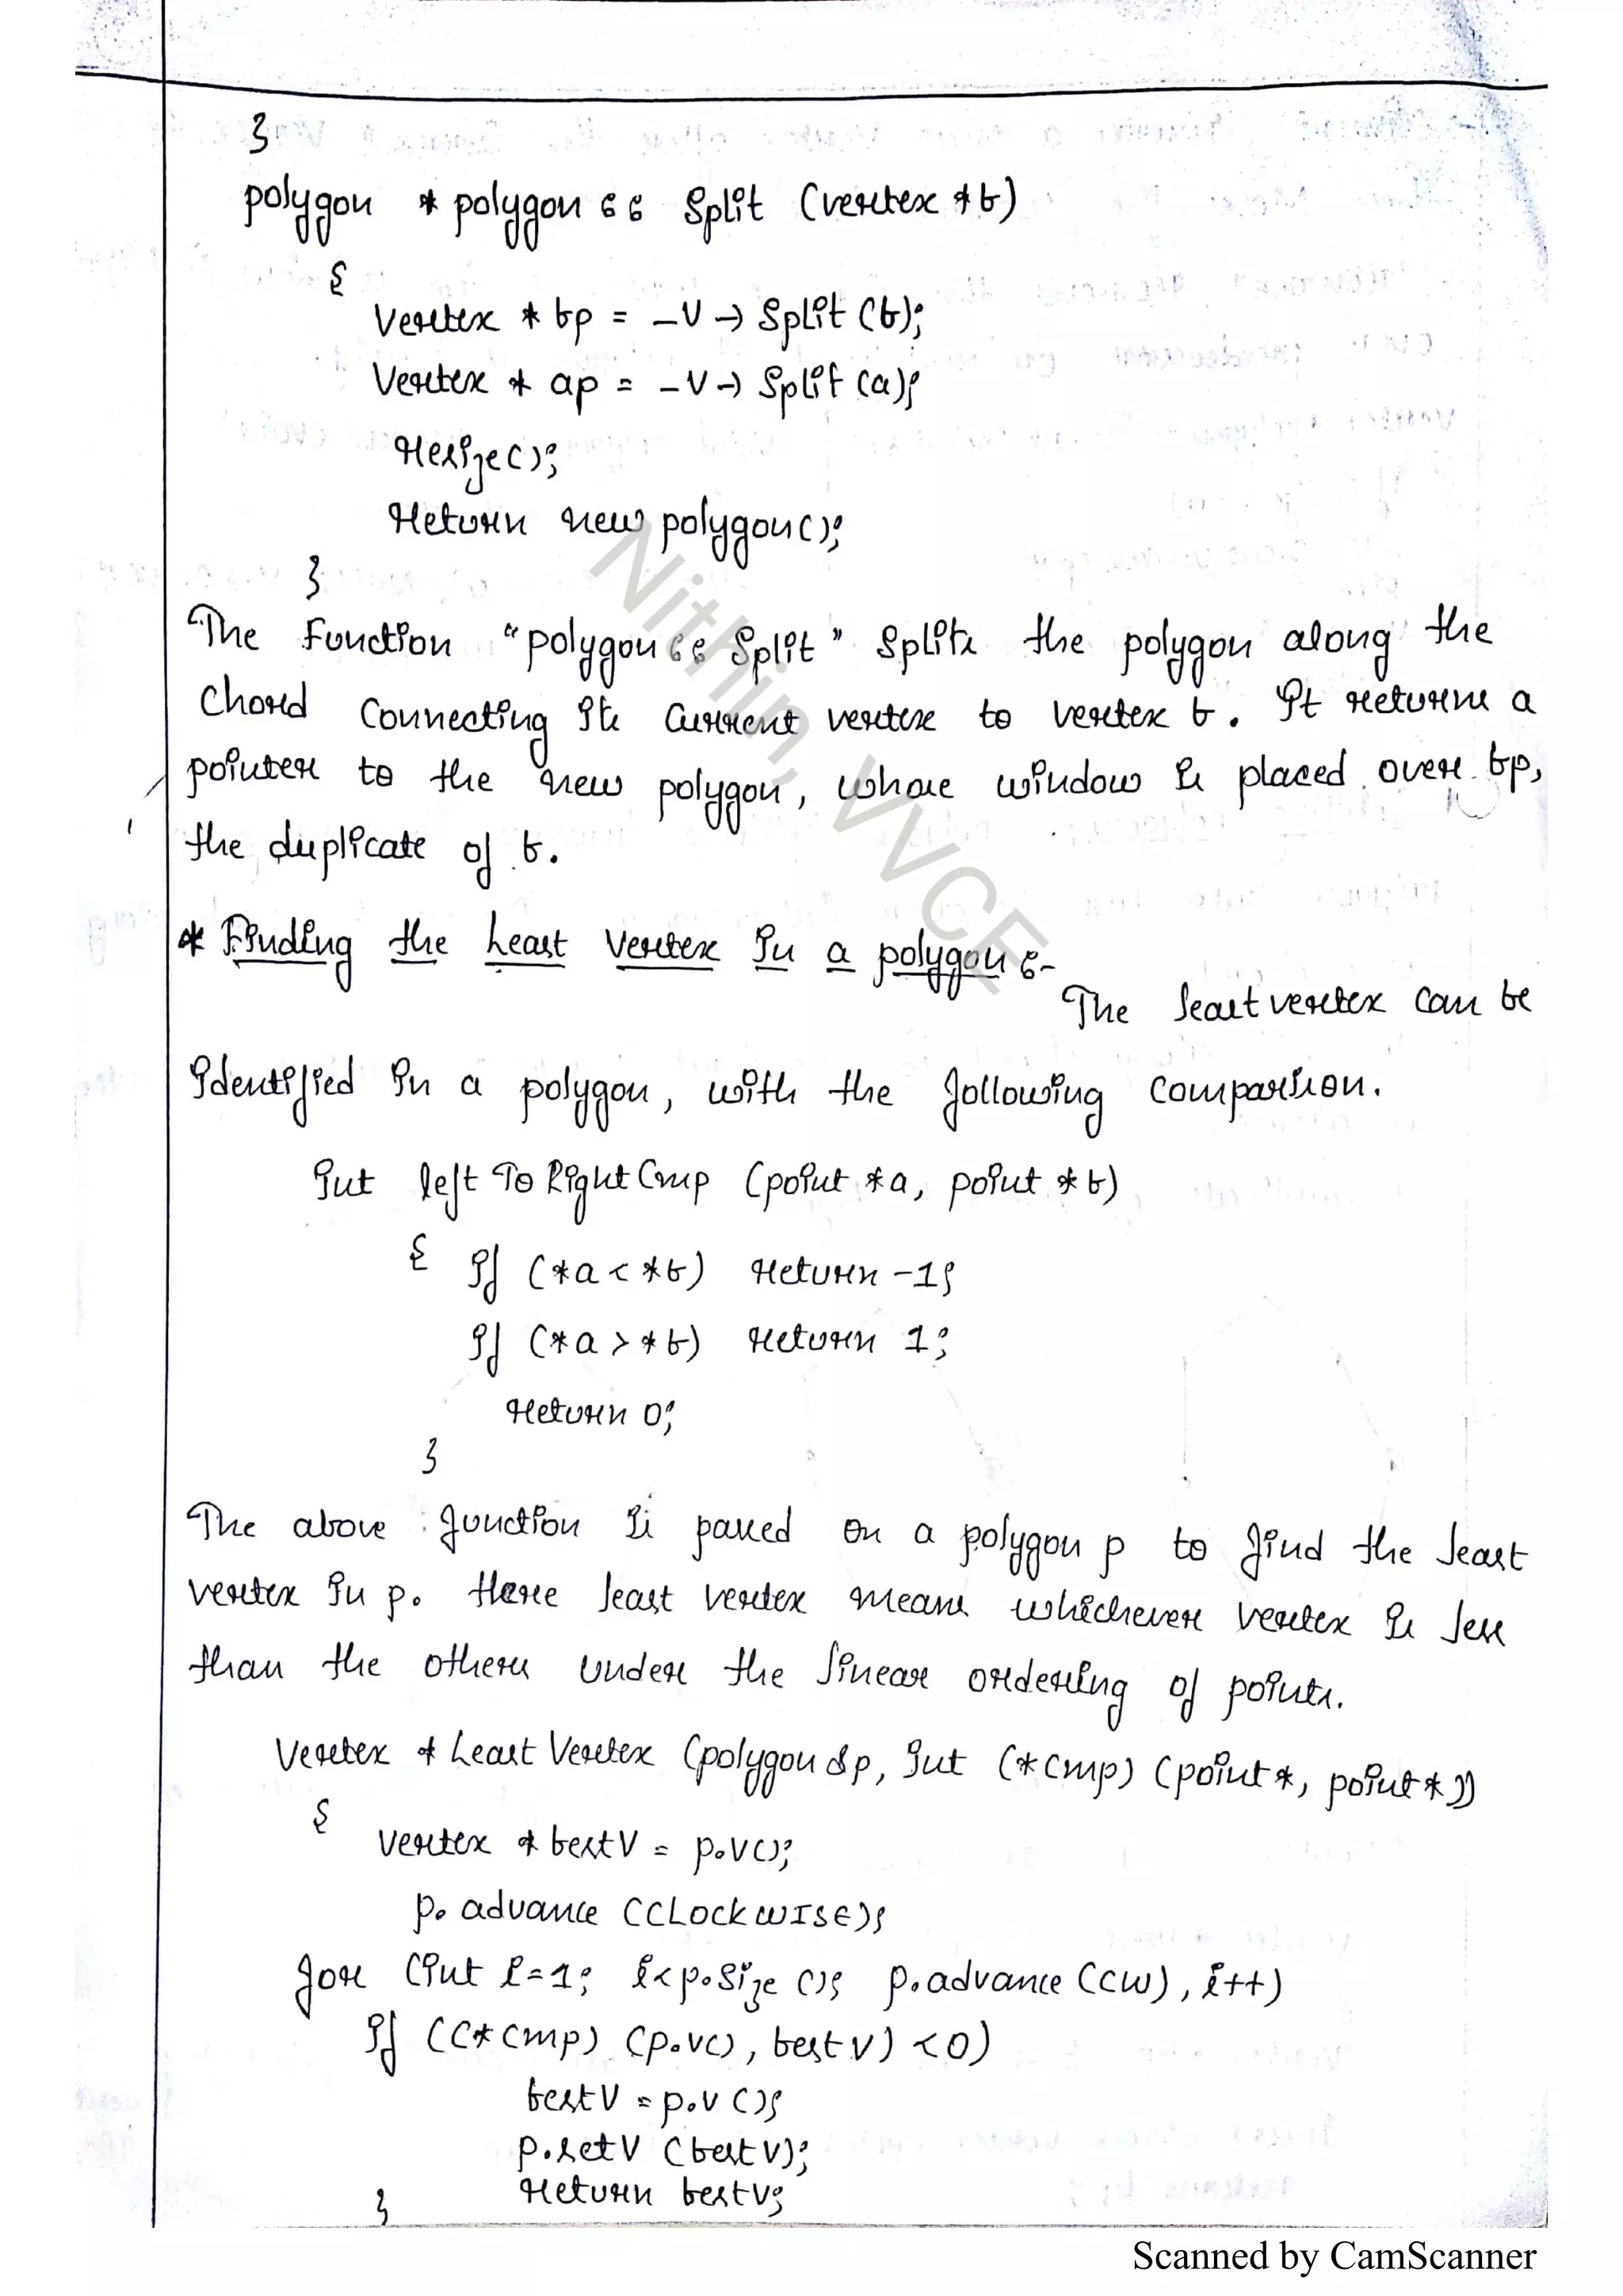 }
polygon * polygon :: split (vertex *b)
{
vertex * bp = _v → split (b);
vertex * ap = _v → split (a);
resize();
return new polygon();
}
The function "polygon :: split" splits the polygon along the
chord connecting its current vertex to vertex b. It returns a
pointer to the new polygon, whose window is placed over bp,
the duplicate of b.
* Finding the least vertex in a polygon :-
The least vertex can be
identified in a polygon, with the following comparison.
int leftToRightCmp (point *a, point *b)
{ if (*a < *b) return -1;
if (*a > *b) return 1;
return 0;
}
The above function is passed on a polygon p to find the least
vertex in p. Here least vertex means whichever vertex is less
than the others under the linear ordering of points.
Vertex * Least Vertex (polygon &p, int (*cmp) (point*, point*))
{
vertex * bestV = p.v();
p. advance (CLOCKWISE);
for (int i=1; i<p.size (); p.advance (CW), i++)
if ((*cmp) (p.v(), bestv) <0)
bestV = p.v ();
p.setV (bestV);
return bestv;
}
Nithin, VVCE
Scanned by CamScanner